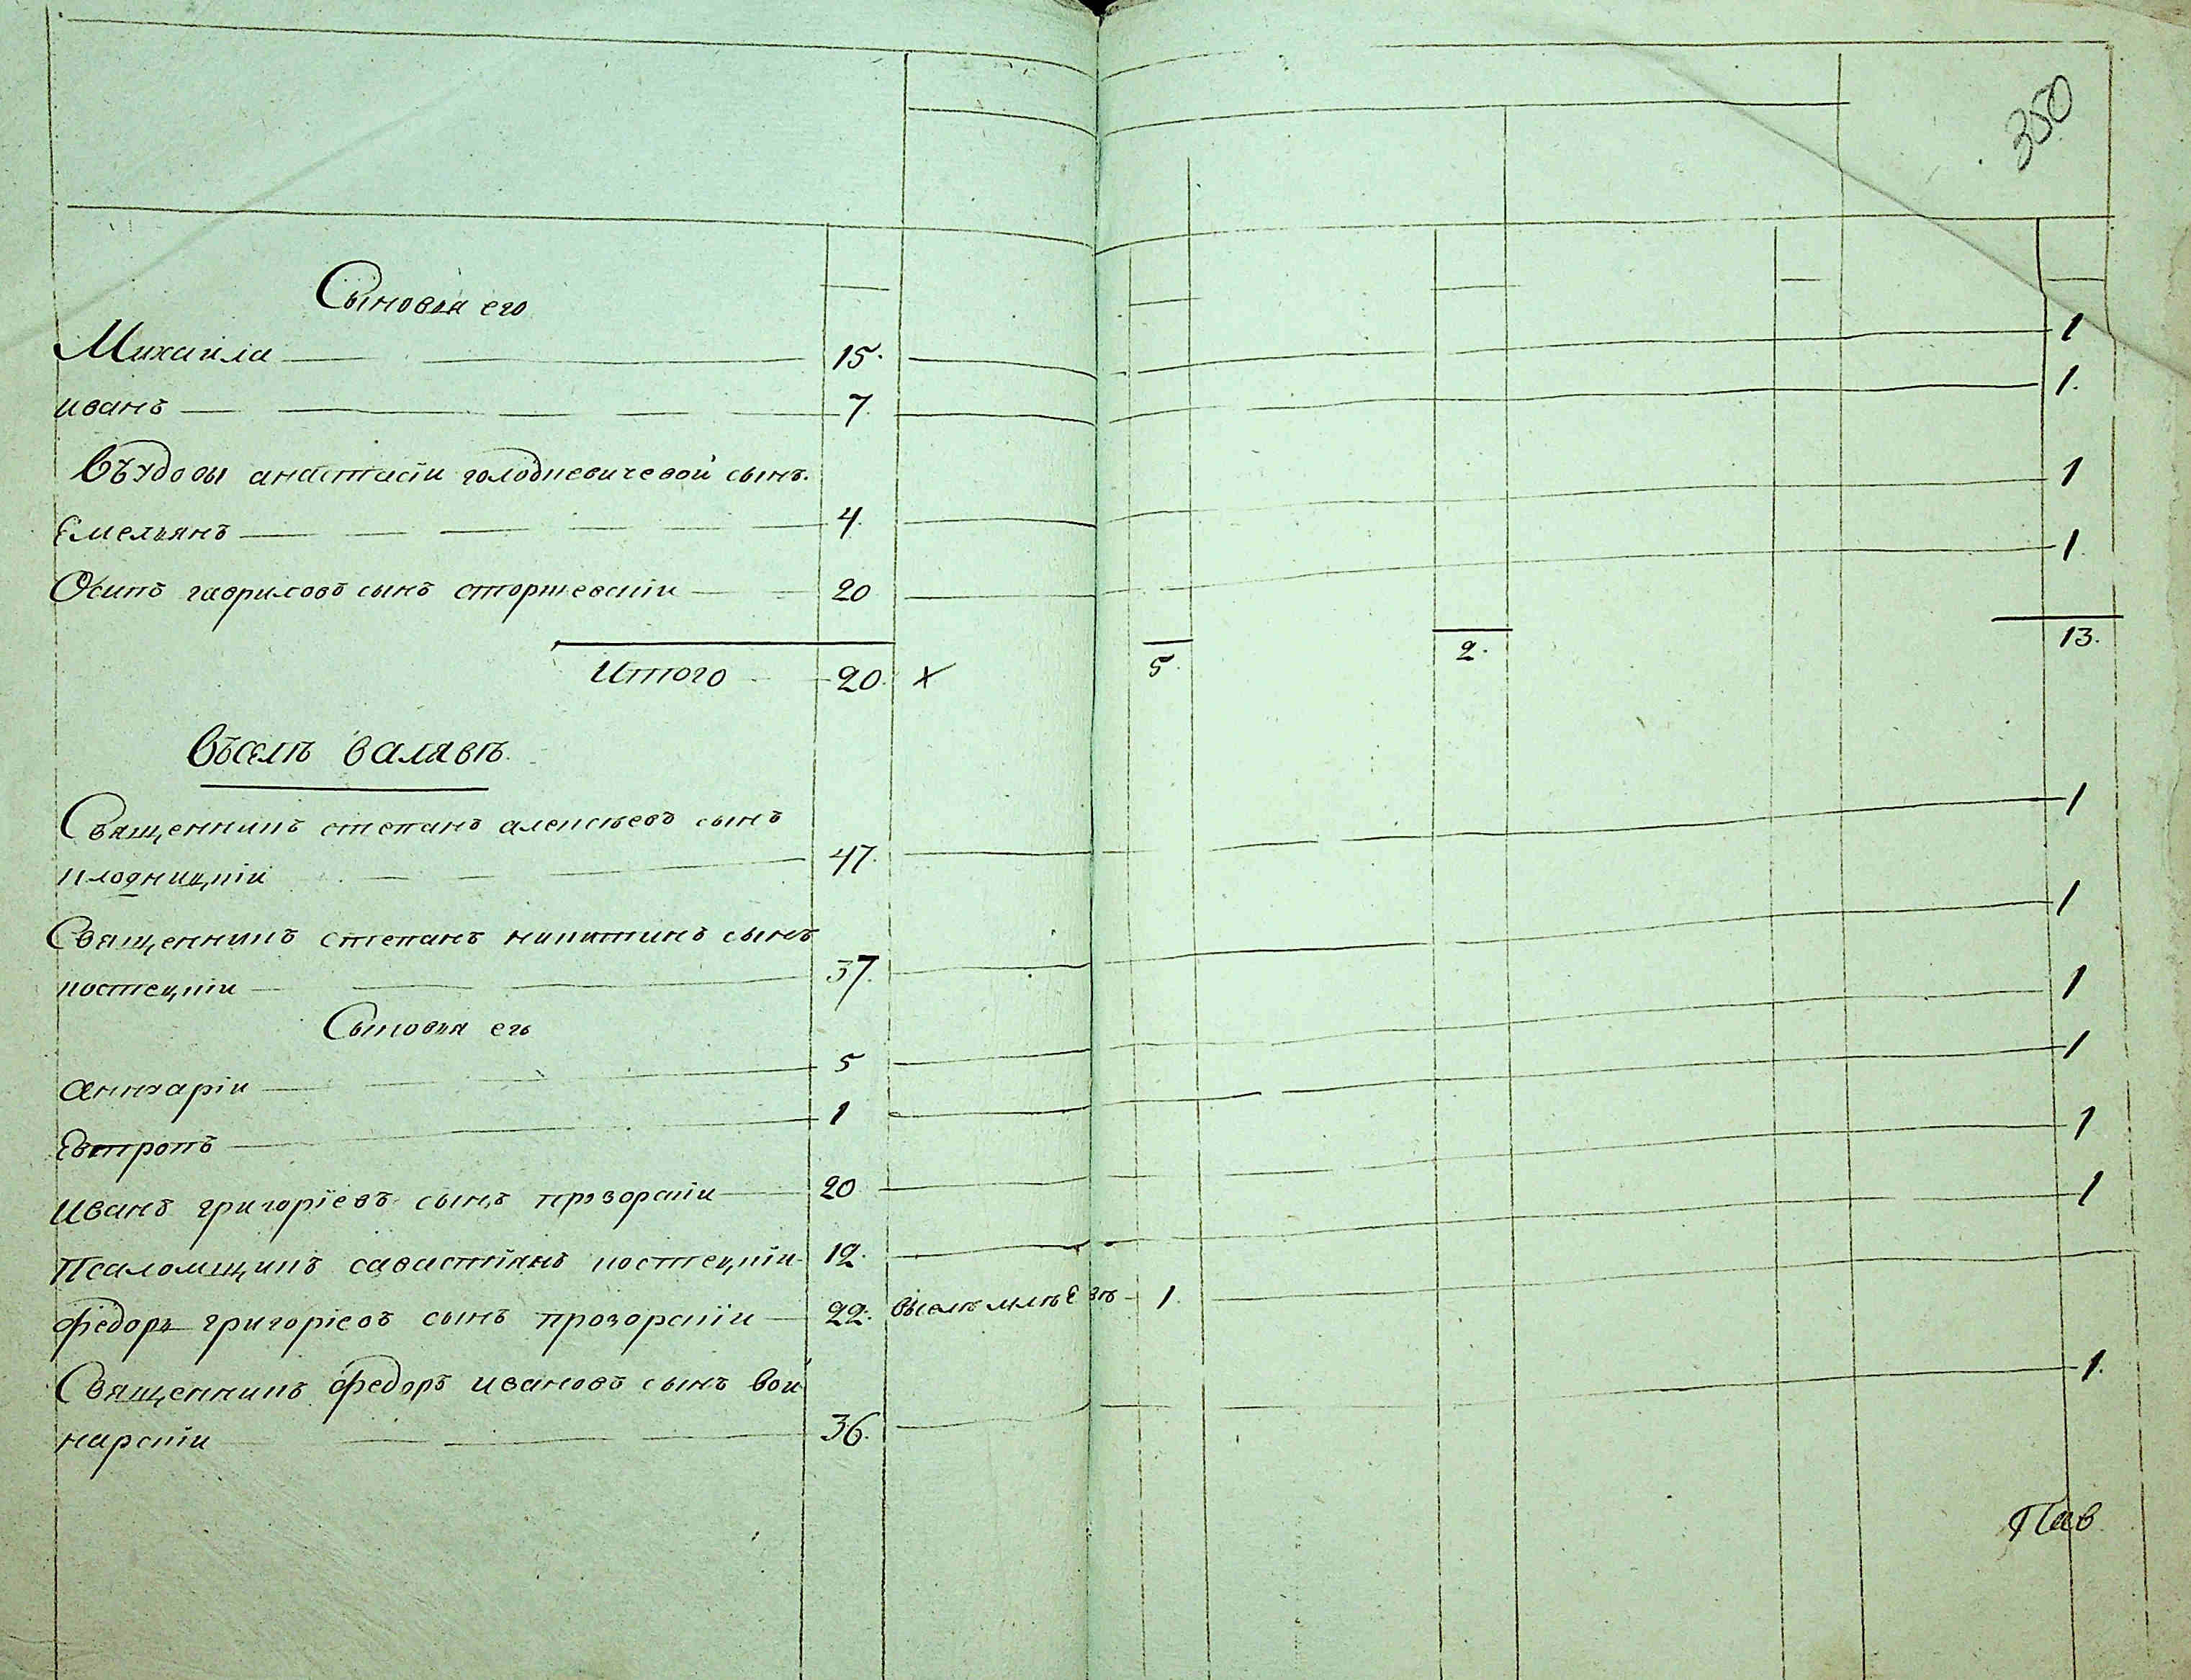 350
Сыновья его
Михаила 15. 1
иванъ 7. 1.
Въудовы анастасіи голодкевичевой сынъ.
Емельянъ 4. 1
Осипъ гавриловъ сынъ сторжевскіи 20 1.
Итого 20. х 5. 2. 13.
Въселѣ валявѣ.
Священникъ степанъ алексѣевъ сынъ
плодницкіи 47. 1
Священникъ степанъ никитинъ сынъ
костецкіи 37. 1
Сыновья его
аннзаріи 5 1
Евтропъ 1 1
иванъ григоріевъ сынъ прозорскіи 20 1
Псаломщикъ савастіянъ костецкіи 12. 1
федоръ григоріевъ сынъ прозорскіи 22. 1.
Священникъ федоръ ивановъ сынъ вой
нарскіи 36. 1.
Пав